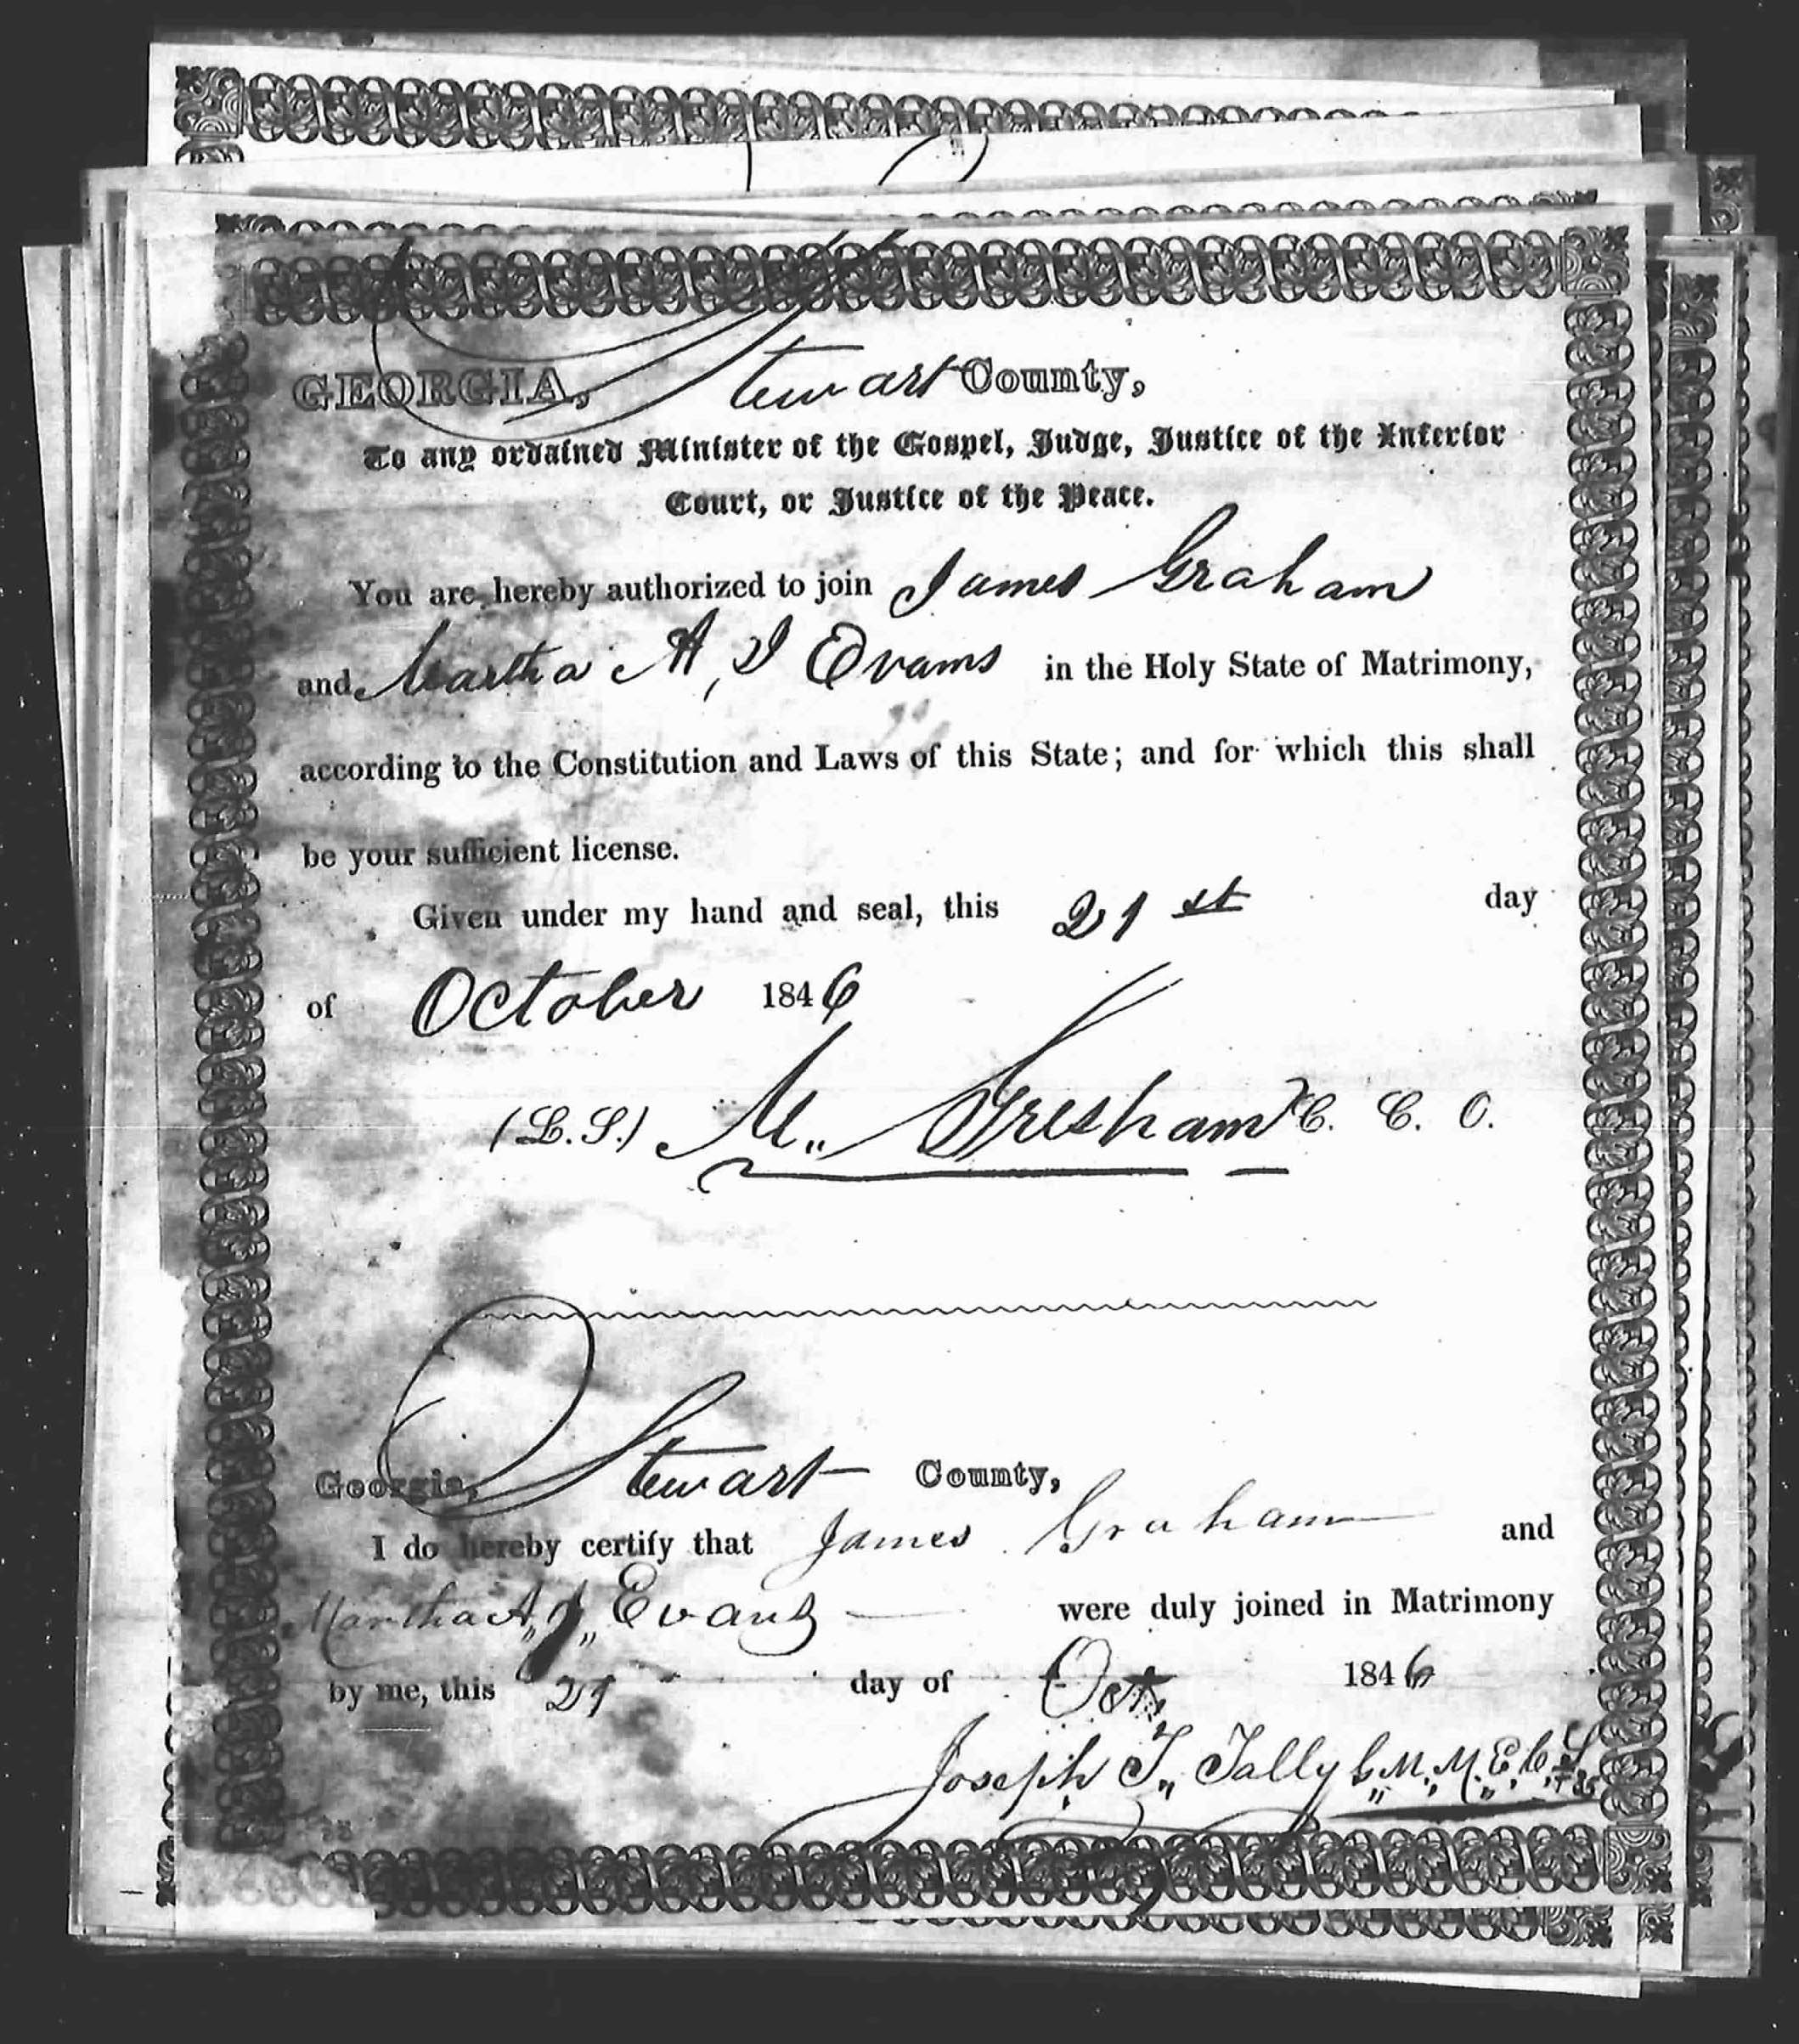 GEORGIA, Stewart County,
To any ordained Minister of the Gospel, Judge, Justice of the Inferior
Court, or Justice of the Peace.
You are hereby authorized to join James Graham
and Martha A, J Evans in the Holy State of Matrimony,
according to the Constitution and Laws of this State; and for which this shall
be your sufficient license.
Given under my hand and seal, this 21st day
of October 1846
(L.S.) M. Gresham C. C. O.
Georgia, Stewart County,
I do hereby certify that James Graham and
Martha A, J, Evans were duly joined in Matrimony
by me, this 21 day of Oct, 1846
Joseph T. Tally M. M. E. C.